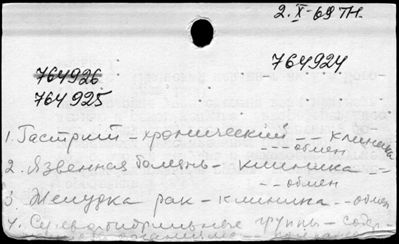 2. X-69 тн.
764926
764924
764925
1. Гастрит - хронический - - клиника
- - обмен
2. Язвенная болезнь - клиника - -
- - обмен
3. Желудка рак - клиника - - обмен
4. Сульфгидрильные группы - содер